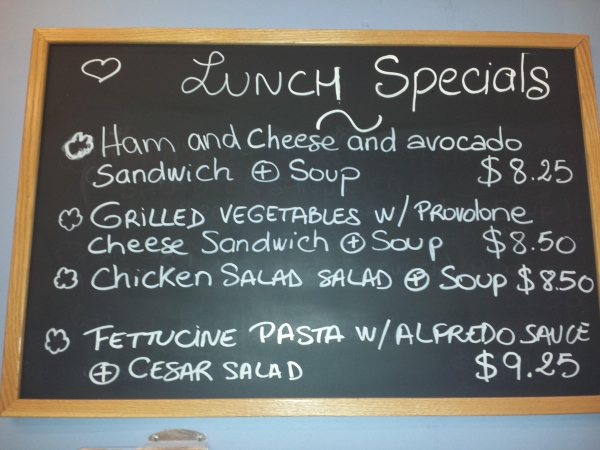 LUNCH Specials
Ham and Cheese and avocado
Sandwich ⊕ Soup $8.25
GRILLED VEGETABLES W/ PROVOLONE
cheese Sandwich ⊕ Soup $8.50
Chicken SALAD SALAD ⊕ Soup $8.50
FETTUCINE PASTA W/ ALFREDO SAUCE
⊕ CESAR SALAD $9.25